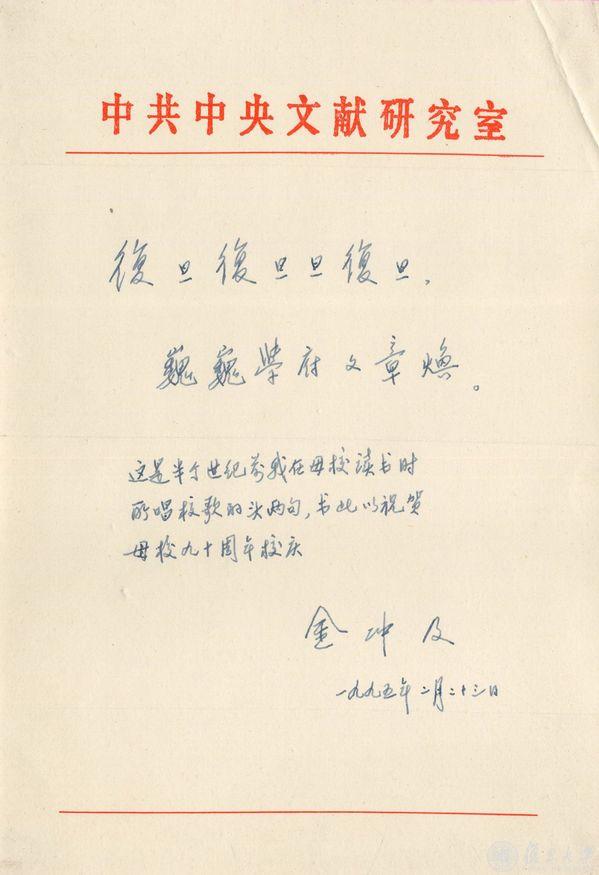 中共中央文献研究室
復旦復旦旦復旦，
巍巍學府文章焕。
这是半个世纪前我在母校读书时
所唱校歌的头两句，书此以祝贺
母校九十周年校庆
金冲及
一九九五年二月二十三日
復旦大學